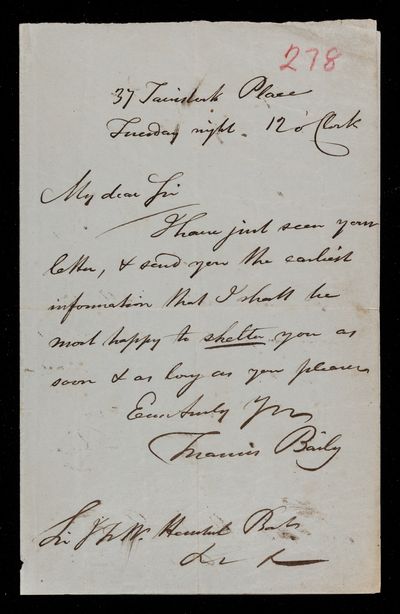 278
37 Tavistock Place
Tuesday night. 12 o'Clock
My dear Sir
I have just seen your
letter, & send you the earliest
information that I shall be
most happy to shelter you as
soon & as long as you please.
Ever truly Yrs
Francis Baily
Sir J F W. Herschel Bart
&c &c